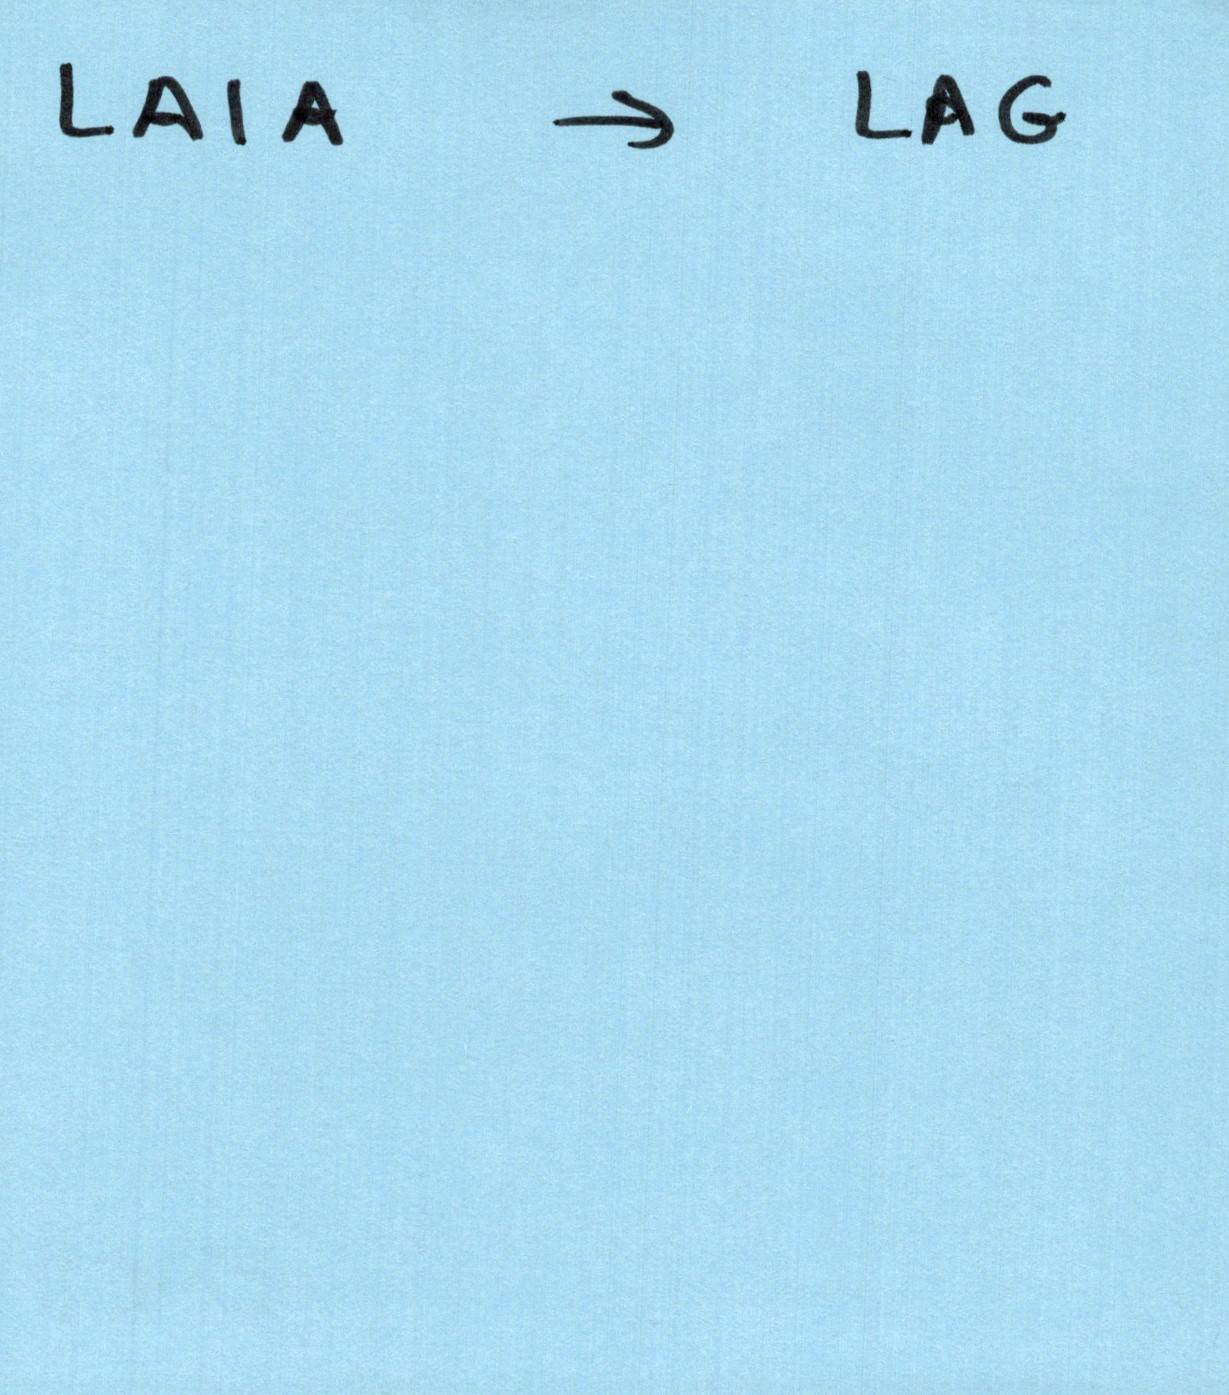 LAIA → LAG